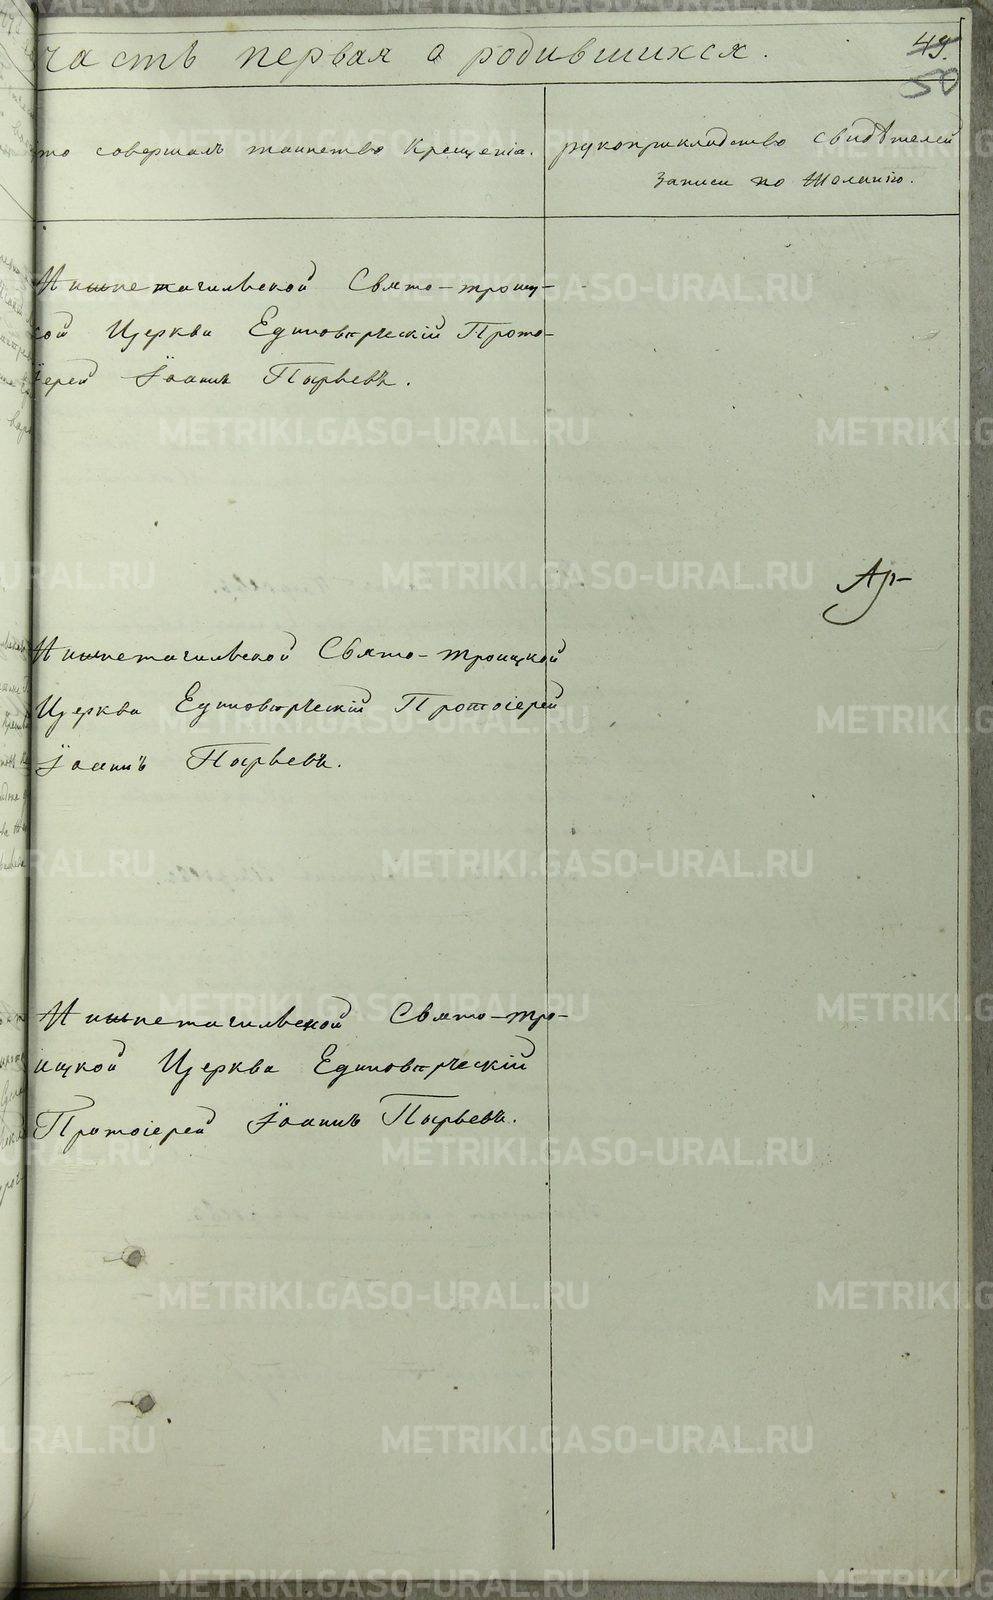 часть первая о родившихся.
49.
50
то совершалъ таинство Крещенія.
рукоприкладство свидѣтелей
записи по желанію.
Нижнетагильской Свято-троиц-
кой Церкви Единовѣрческій Прото-
іерей Іоаннъ Пырьевъ.
Ар
Нижнетагильской Свято-троицкой
Церкви Единовѣрческій Протоіерей
Іоаннъ Пырьевъ.
Нижнетагильской Свято-тро-
ицкой Церкви Единовѣрческій
Протоіерей Іоаннъ Пырьевъ.
METRIKI.GASO-URAL.RU